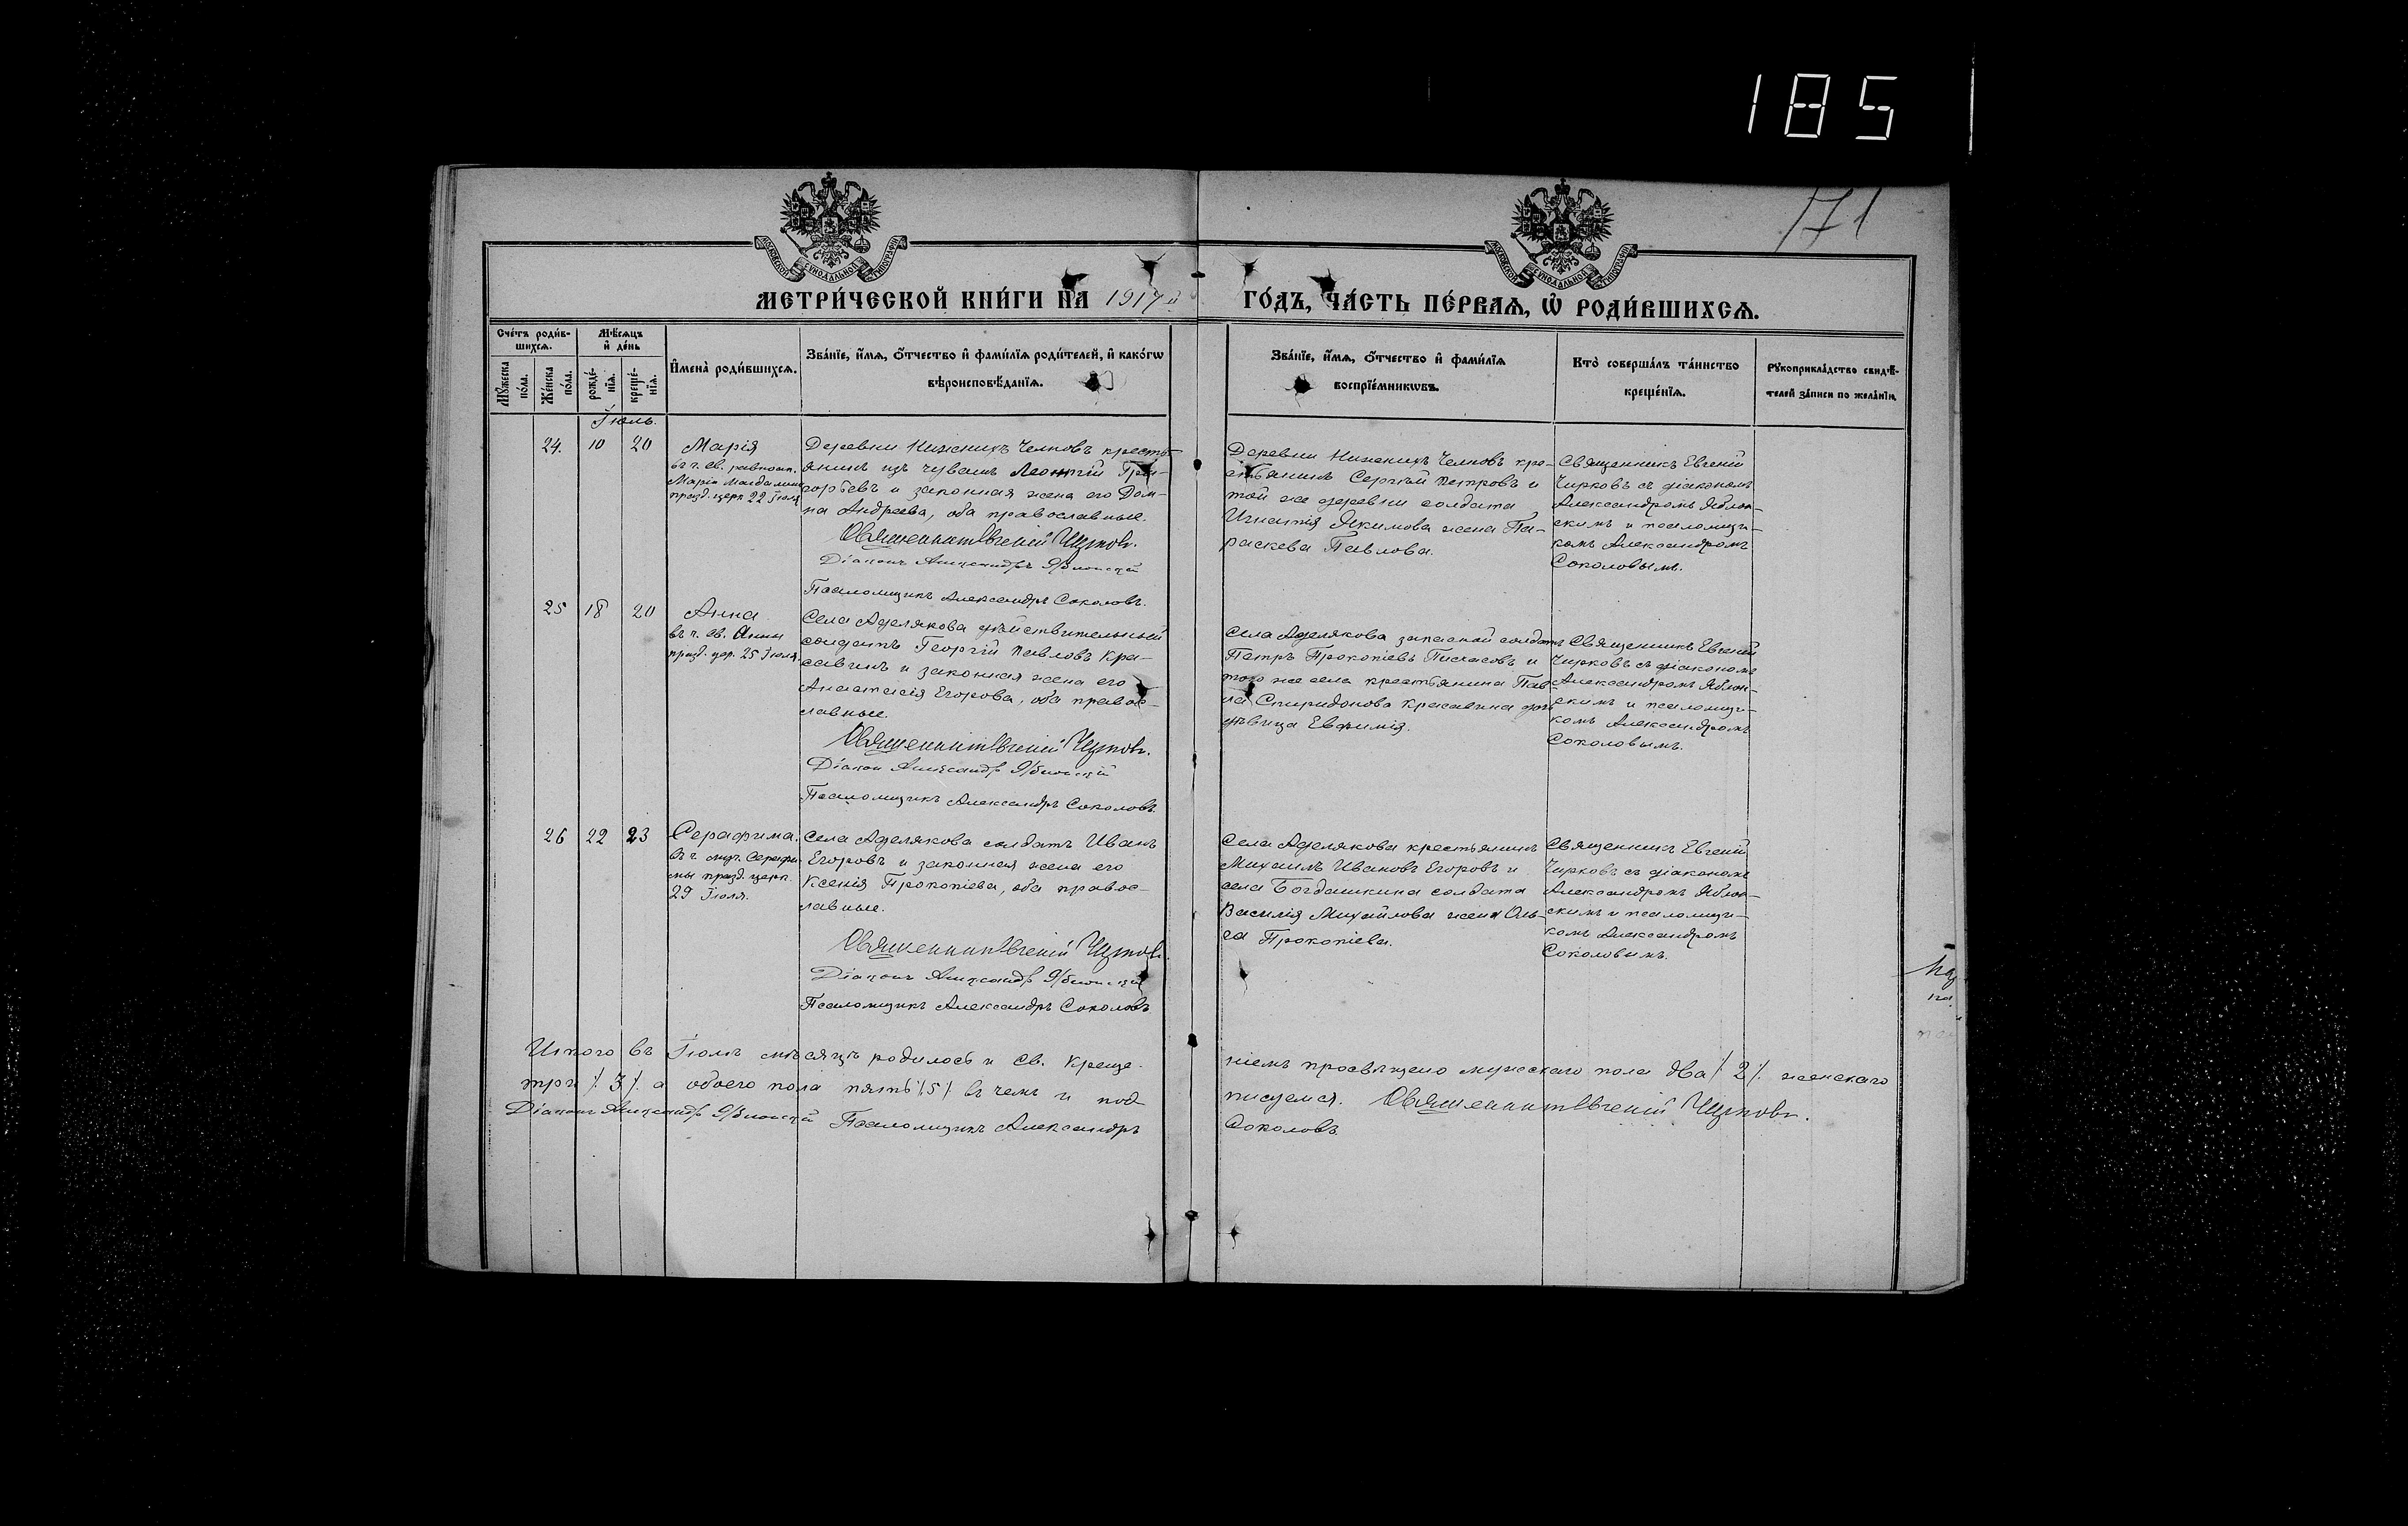 185
171
МОСКОВСКОЙ СУНОДАЛЬНОЙ ТИПОГРАФІИ
МОСКОВСКОЙ СУНОДАЛЬНОЙ ТИПОГРАФІИ
МЕТРИ́ЧЕСКОЙ КНИ́ГИ НА 1917й
ГО́ДЪ, ЧА́СТЬ ПЕ́РВАѦ, Ѡ҆ РОДИ́ВШИХСѦ.
Сче́тъ роди́в-
шихсѧ.
Мꙋ́жеска
по́ла.
Же́нска
по́ла.
Мѣ́сѧцъ
и҆ де́нь
рожде́-
нїѧ.
креще́-
нїѧ.
И҆мена̀ роди́вшихсѧ.
Зва́нїе, и҆́мѧ, ѻ҆́тчество и҆ фами́лїѧ роди́телей, и҆ како́гѡ
вѣроисповѣ́данїѧ.
Зва́нїе, и҆́мѧ, ѻ҆́тчество и҆ фами́лїѧ
воспрїе́мникѡвъ.
Кто̀ соверша́лъ та́инство
креще́нїѧ.
Рꙋкоприкла́дство свидѣ́-
телей за́писи по жела́нїю.
Іюль.
24. 10 20
Марія
въ ч. св. равноап.
Маріи Магдалины
празд. церк 22 Іюля
Деревни Нижнихъ Челновъ кресть-
янинъ изъ чувашъ Леонтій Гри-
горьевъ и законная жена его Дом-
на Андреева, оба православные.
Священникъ Евгеній Чирковъ.
Діаконъ Александръ Яблонскій
Псаломщикъ Александръ Соколовъ.
Деревни Нижнихъ Челновъ кре-
стьянинъ Сергѣй Петровъ и
той же деревни солдата
Игнатія Якимова жена Па-
раскева Павлова.
Священникъ Евгеній
Чирковъ съ діакономъ
Александромъ Яблон-
скимъ и псаломщи-
комъ Александромъ
Соколовымъ.
25 18 20
Анна
въ ч. св. Анны
празд. цер. 25 Іюля.
Села Аделякова дѣйствительный
солдатъ Георгій Павловъ Кра-
савинъ и законная жена его
Анастасія Егорова, оба правос-
лавные.
Священникъ Евгеній Чирковъ.
Діаконъ Александръ Яблонскій
Псаломщикъ Александръ Соколовъ.
Села Аделякова запасной солдатъ
Петръ Прокопіевъ и
того же села крестьянина Пав-
ла Спиридонова Красавина
дѣвица Евфимія.
Священникъ Евгеній
Чирковъ съ діакономъ
Александромъ Яблон-
скимъ и псаломщи-
комъ Александромъ
Соколовымъ.
26 22 23
Серафима.
въ ч. муч. Серафи-
мы празд. церк.
29 Іюля.
Села Аделякова солдатъ Иванъ
Егоровъ и законная жена его
Ксенія Прокопіева, оба правос-
лавные.
Священникъ Евгеній Чирковъ.
Діаконъ Александръ Яблонскій
Псаломщикъ Александръ Соколовъ
Села Аделякова крестьянинъ
Михаилъ Ивановъ Егоровъ и
села Богдашкина солдата
Василія Михайлова жена Оль-
га Прокопіева.
Священникъ Евгеній
Чирковъ съ діакономъ
Александромъ Яблон-
скимъ и псаломщи-
комъ Александромъ
Соколовымъ.
Итого въ Іюлѣ мѣсяцѣ родилось и св. Креще-
ніемъ просвѣщено мужскаго пола два /.2/. женскаго
три /.3/. а обоего пола пять /.5/. въ чемъ и под-
писуемся. Священникъ Евгеній Чирковъ.
Діаконъ Александръ Яблонскій Псаломщикъ Александръ
Соколовъ.